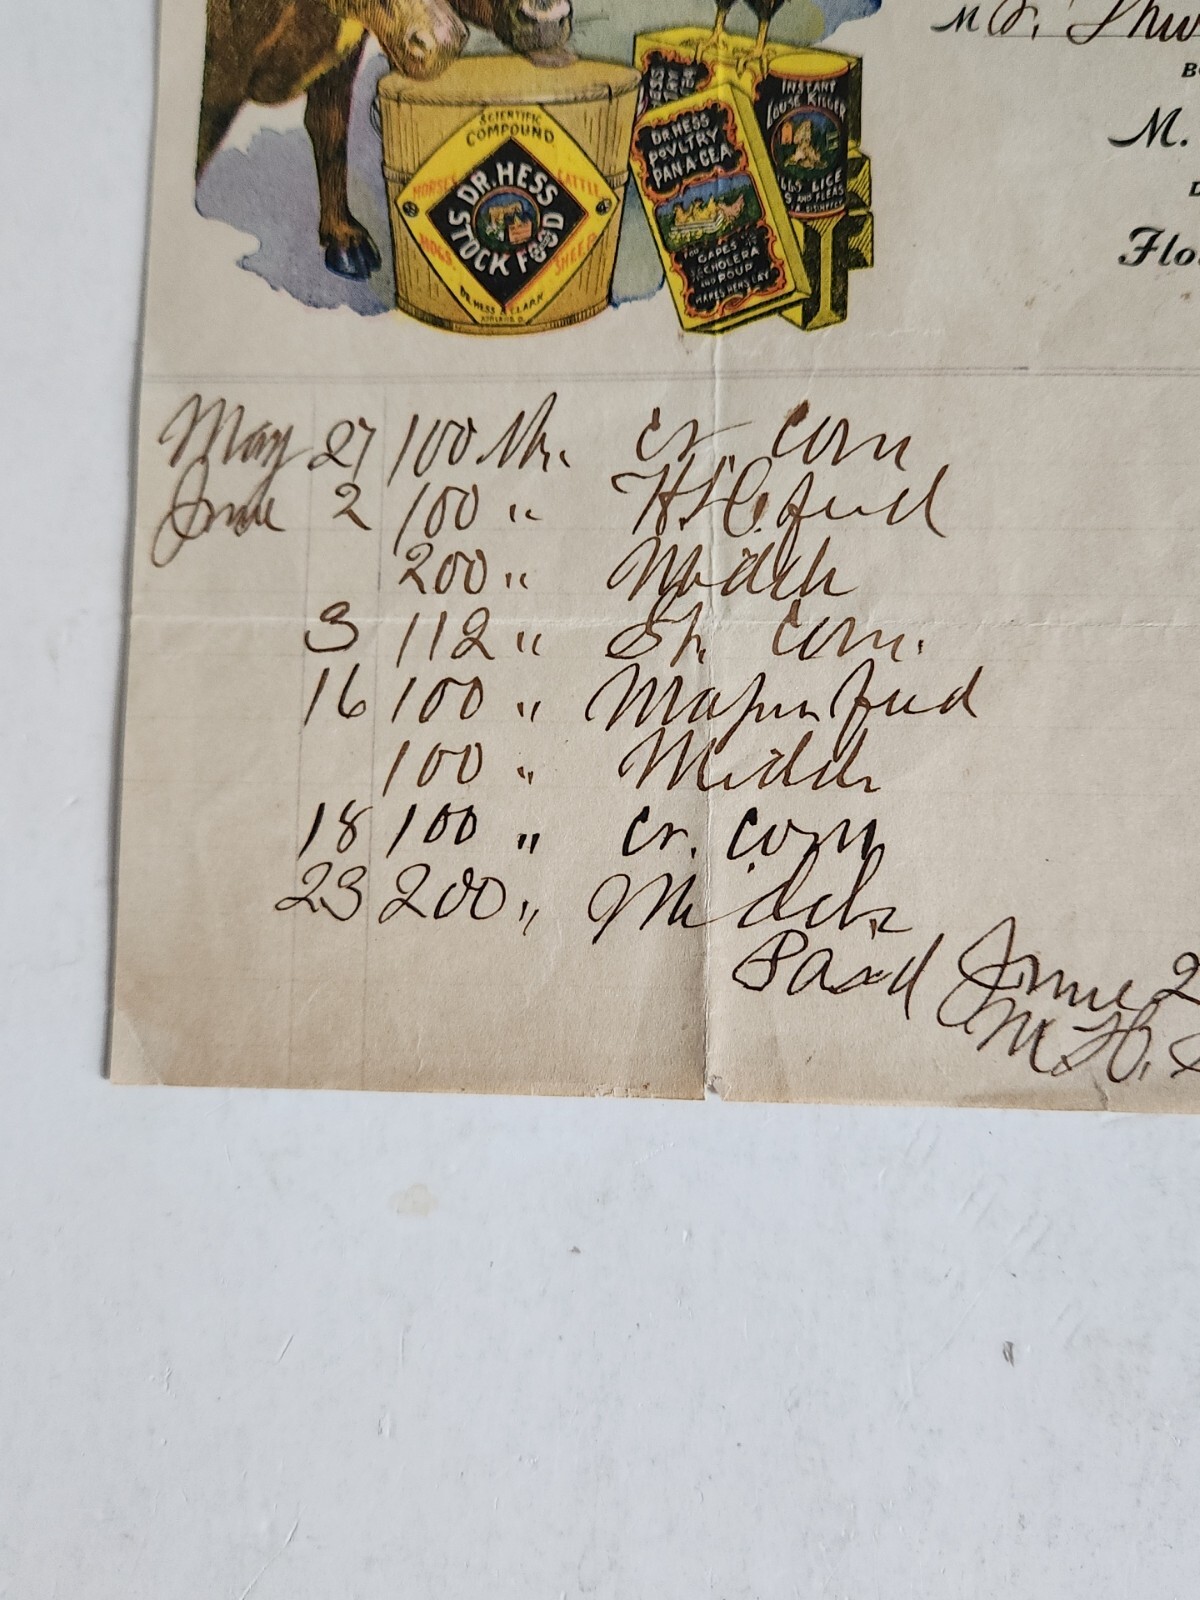 Mr. Thw
B
M.
D
Flo
SCIENTIFIC
COMPOUND
HORSES CATTLE
DR. HESS
STOCK FOOD
HOGS. SHEEP.
DR. HESS & CLARK
DR. HESS
POULTRY
PAN-A-CE-A
FOR GAPES
CHOLERA
AND ROUP
MAKES HENS LAY
INSTANT
LOUSE KILLER
LICE
AND FLEAS
May 27 100 lbs. cr. corn
June 2 100 " H.H.O. feed
200 " Midds
3 112 " Sh. corn.
16 100 " feed
100 " Midds
18 100 " cr. corn
23 200 " Midds
Paid June 2
M.H. S